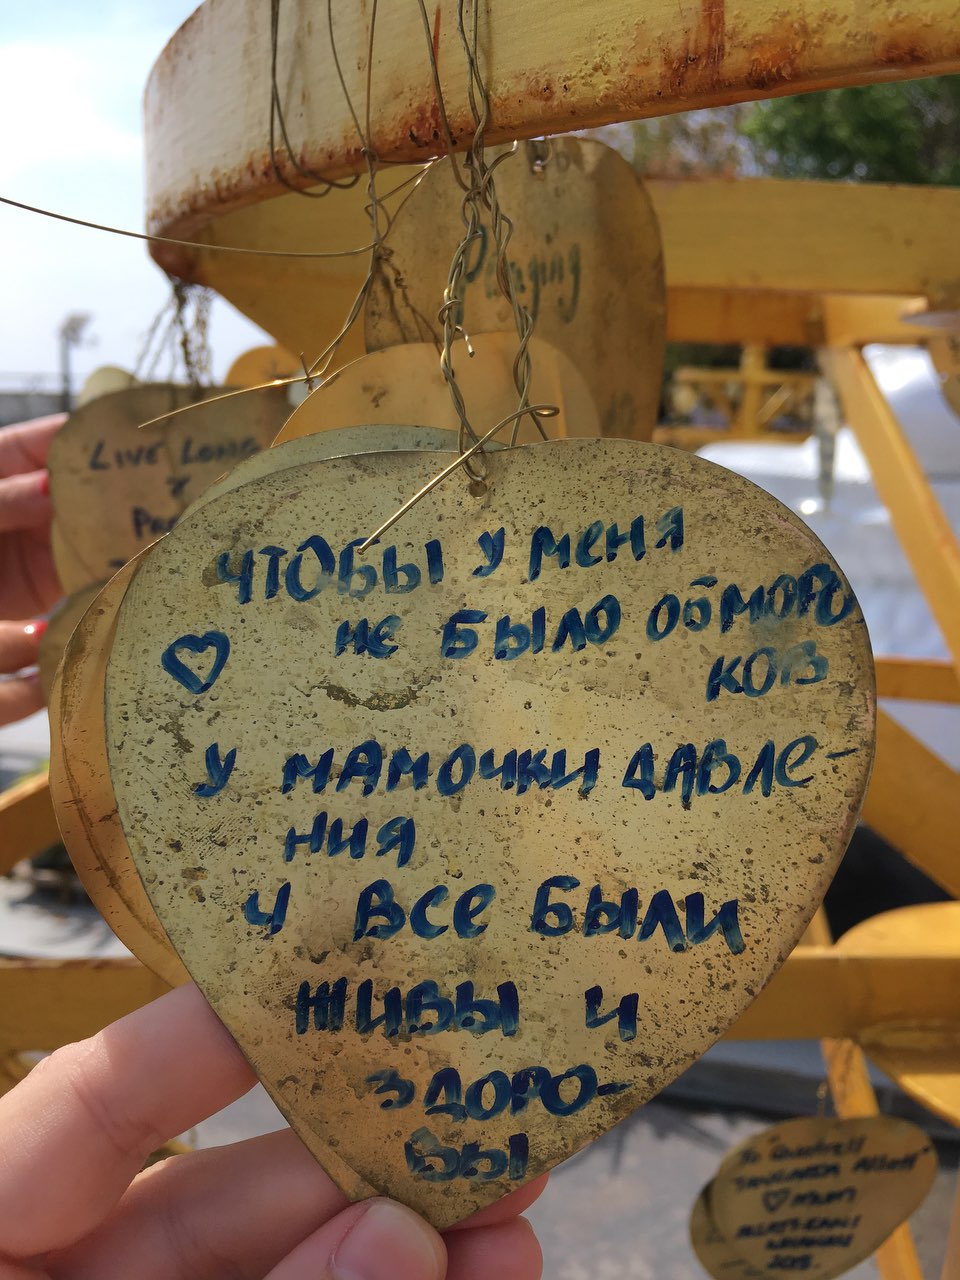 Panging
LIVE LONG
&
ЧТОБЫ У МЕНЯ
НЕ БЫЛО ОБМОРО
КОВ
У МАМОЧКИ ДАВЛЕ-
НИЯ
И ВСЕ БЫЛИ
ЖИВЫ И
ЗДОРО-
ВЫ
To
MUM
2015.